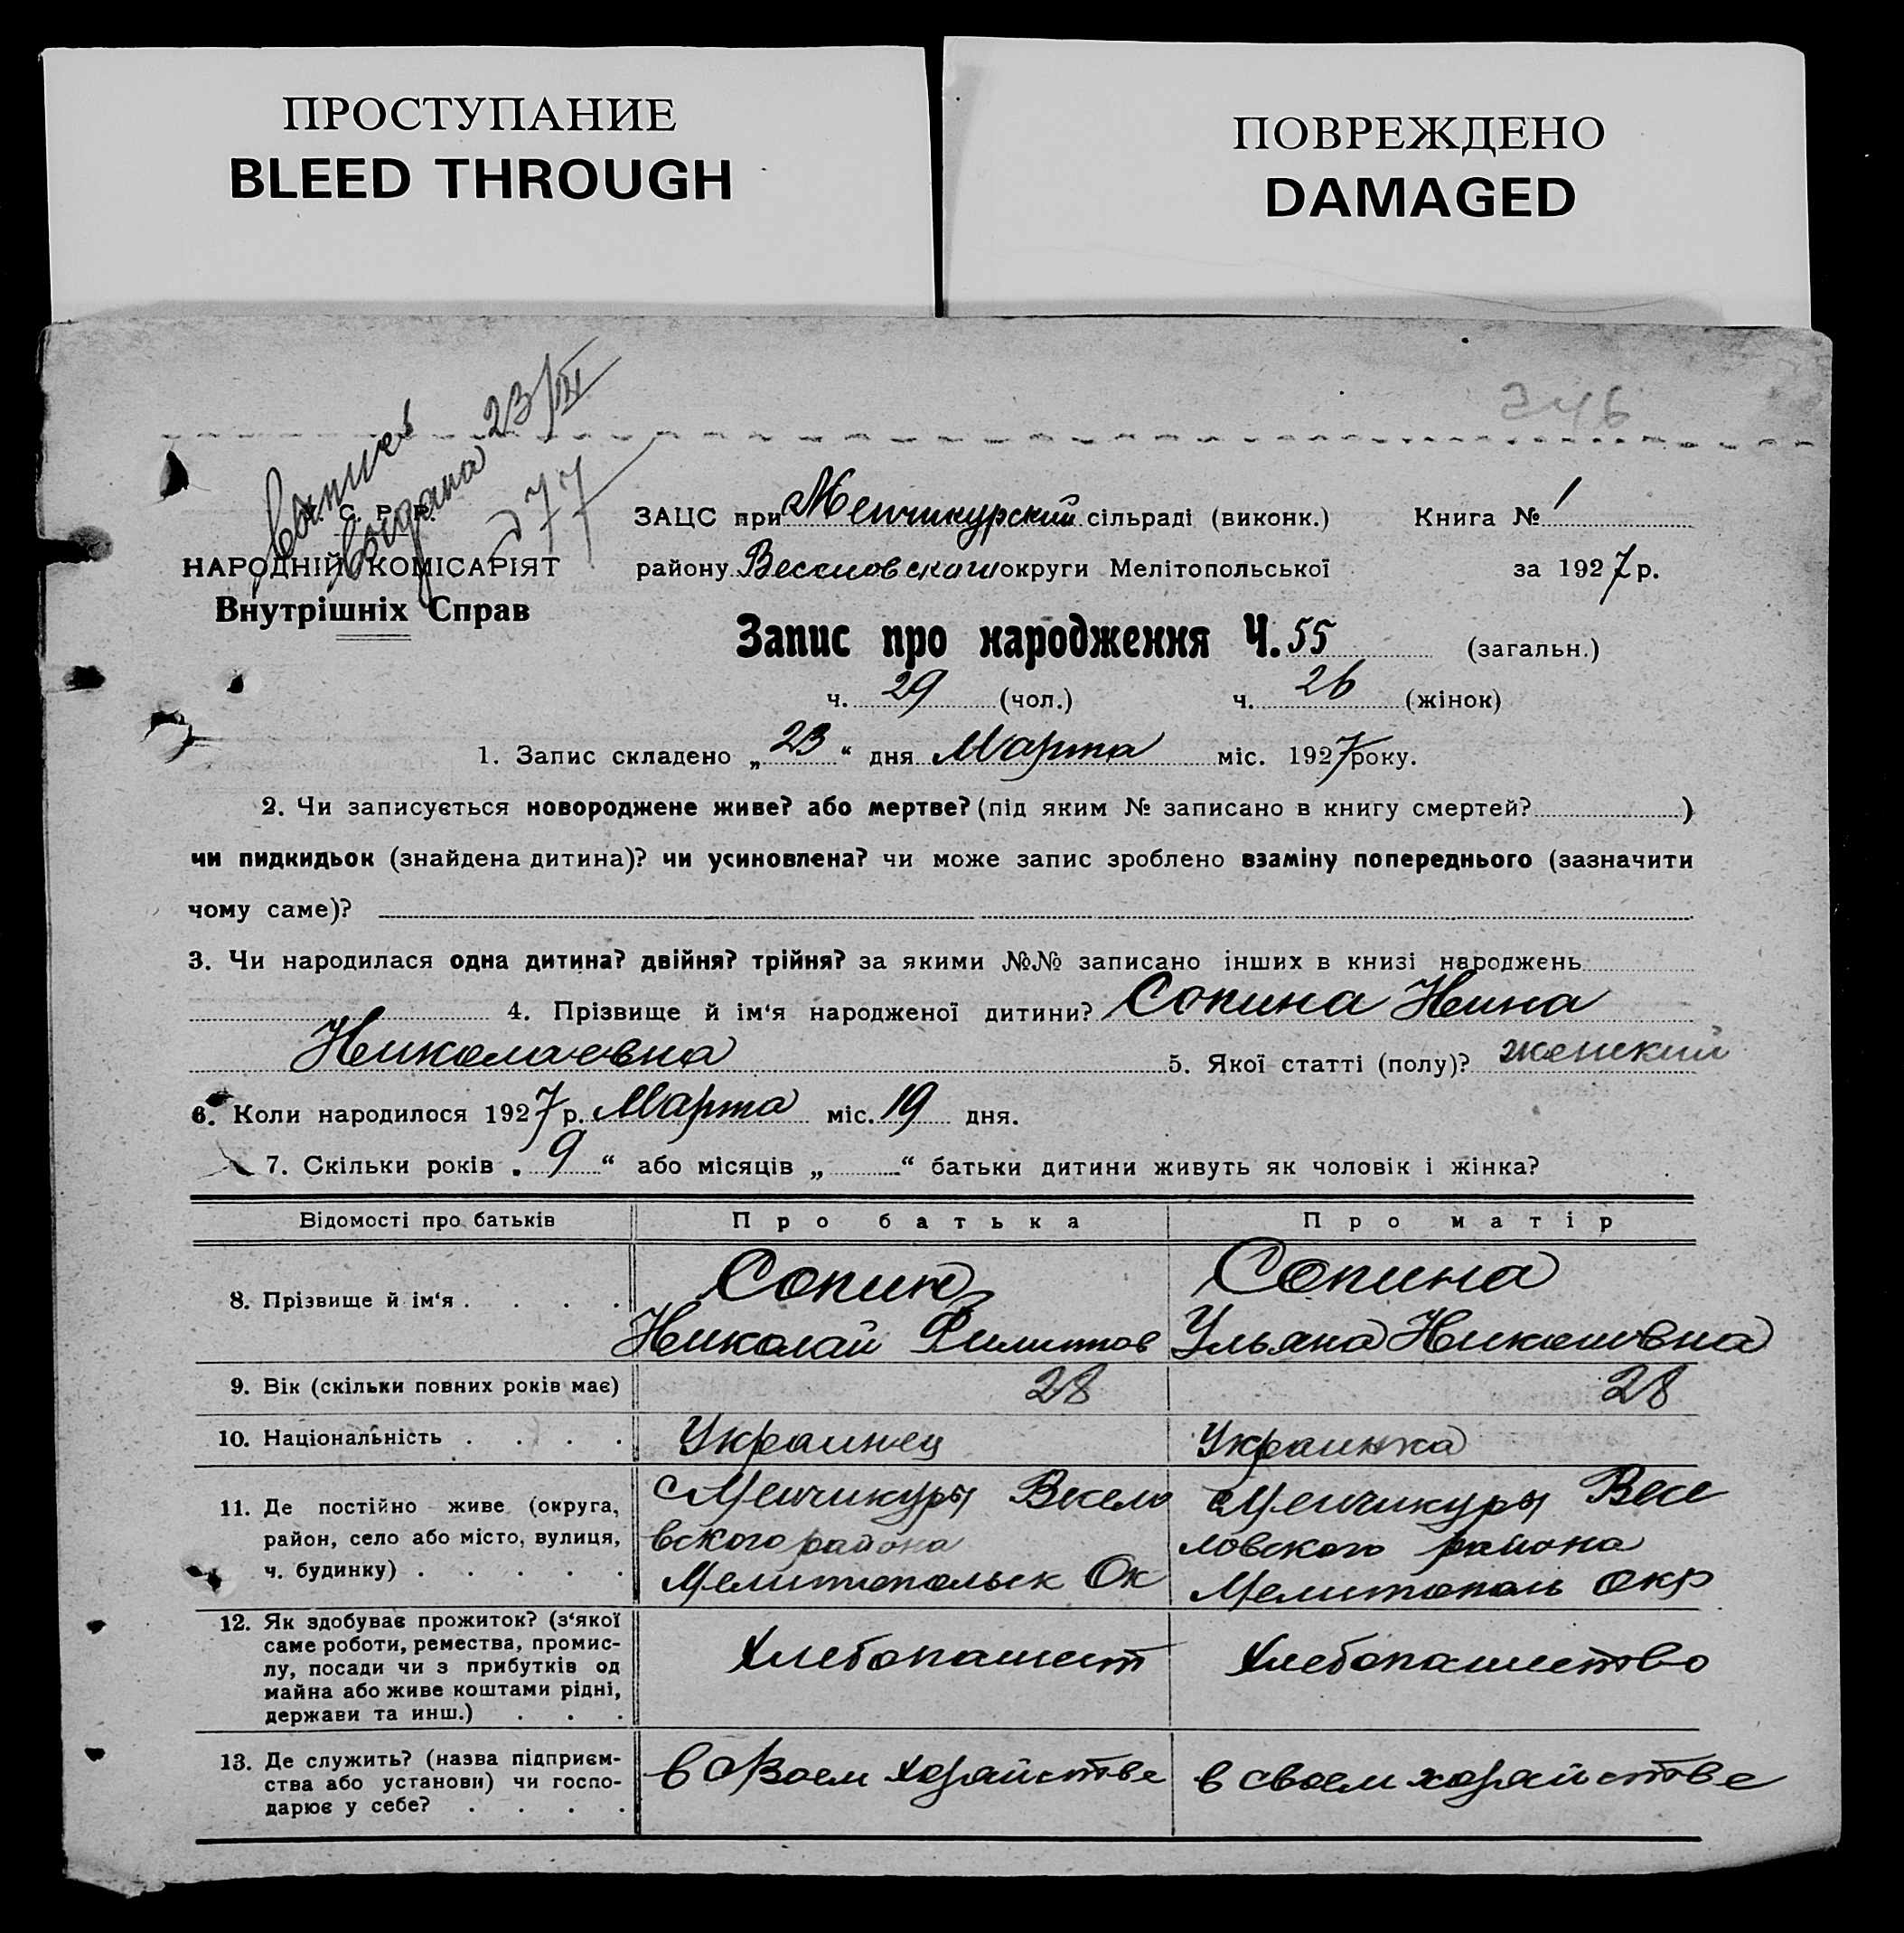 ПРОСТУПАНИЕ
BLEED THROUGH
ПОВРЕЖДЕНО
DAMAGED
246
Выпись
выдана 23/III
д 77
У. С. Р. Р.
НАРОДНІЙ КОМІСАРІЯТ
Внутрішніх Справ
ЗАЦС при Менчикурский сільраді (виконк.) Книга № 1
району Веселовского округи Мелітопольської за 1927 р.
Запис про народження Ч. 55 (загальн.)
ч. 29 (чол.) ч. 26 (жінок)
1. Запис складено „ 23 “ дня Марта міс. 1927 року.
2. Чи записується новороджене живе? або мертве? (під яким № записано в книгу смертей? )
чи пидкидьок (знайдена дитина)? чи усиновлена? чи може запис зроблено взаміну попереднього (зазначити
чому саме)?
3. Чи народилася одна дитина? двійня? трійня? за якими №№ записано інших в книзі народжень
4. Прізвище й ім‘я народженої дитини? Сопина Нина
Николаевна 5. Якої статті (полу)? женский
6. Коли народилося 1927 р. Марта міс. 19 дня.
7. Скільки років „ 9 “ або місяців „ “ батьки дитини живуть як чоловік і жінка?
Відомості про батьків Про батька Про матір
8. Прізвище й ім‘я . . . . Сопин Сопина
Николай Филиппов Ульяна Николаевна
9. Вік (скільки повних років має) 28 28
10. Національність . . . . Украинец Украинка
11. Де постійно живе (округа, с Менчикуры Весело с Менчикуры Весе
район, село або місто, вулиця, вского района ловского района
ч. будинку) . . . . . Мелитопольск Ок Мелитополь Окр
12. Як здобуває прожиток? (з‘якої
саме роботи, ремества, промис-
лу, посади чи з прибутків од Хлебопашест Хлебопашество
майна або живе коштами рідні,
держави та инш.) . . .
13. Де служить? (назва підприєм- в своем хозяйстве в своем хозяйстве
ства або установи) чи госпо-
дарює у себе? . . . .